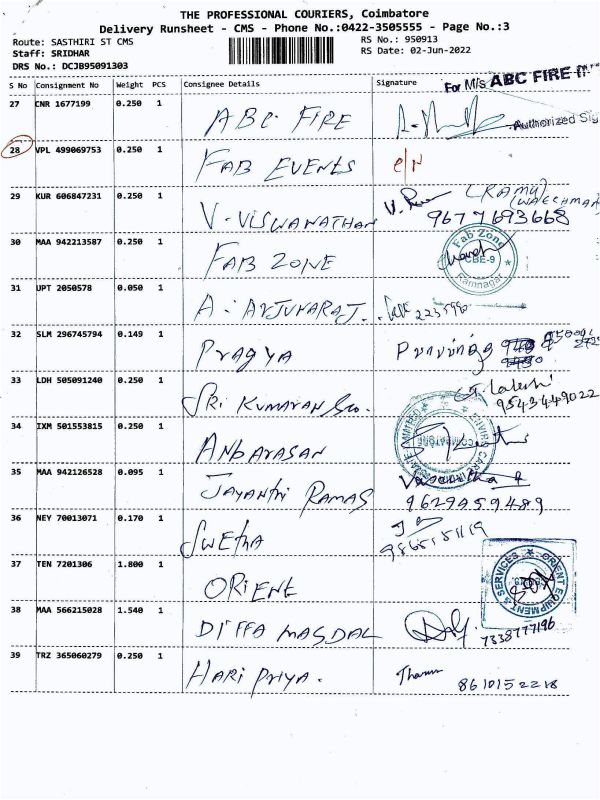 THE PROFESSIONAL COURIERS, Coimbatore
Delivery Runsheet - CMS - Phone No.:0422-3505555 - Page No.:3
Route: SASTHIRI ST CMS
RS No.: 950913
Staff: SRIDHAR
RS Date: 02-Jun-2022
DRS No.: DCJB95091303
S No Consignment No Weight PCS Consignee Details Signature
For M/s ABC FIRE
27 CNR 1677199 0.250 1 ABC FIRE
Authorized Sig
28 VPL 499069753 0.250 1 FAB EVENTS
29 KUR 606847231 0.250 1 V. VISWANATHAN (RAMU) (WATCHMAN)
9677693668
30 MAA 942213587 0.250 1 FAB ZONE
Fab Zond CBE-9 Ramnagar
31 UPT 2050578 0.050 1 A. ARJUNARAJ.
32 SLM 296745794 0.149 1 PRAGYA
33 LDH 505091240 0.250 1 SRI KUMARAN
9543449022
34 IXM 501553815 0.250 1 ANBARASAN
35 MAA 942126528 0.095 1 JAYANTHI RAMAS
9629459489
36 NEY 70013071 0.170 1 SWETHA
37 TEN 7201306 1.800 1 ORIENT
ORIENT EQUIPMENT SERVICES
38 MAA 566215028 1.540 1 DIFFA MAGDAL
7338777196
39 TRZ 365060279 0.250 1 HARI PRIYA.
8610152218